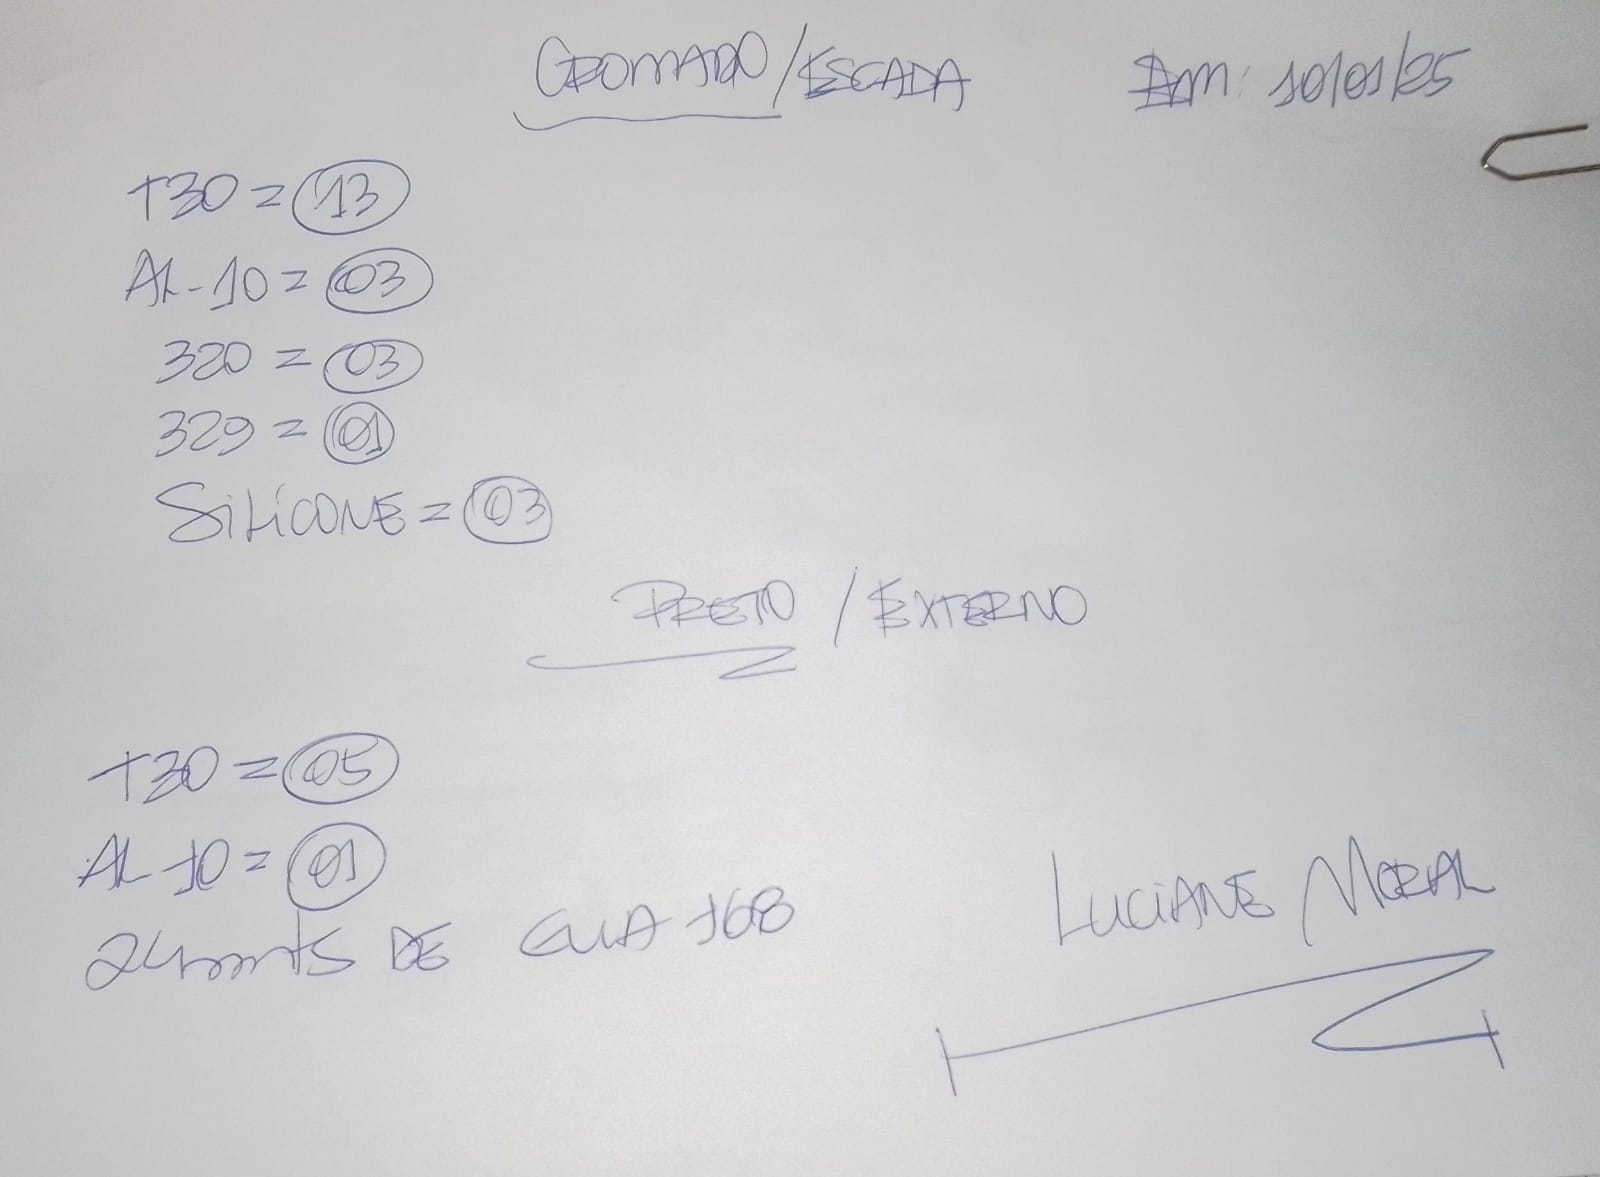 CROMADO/ESCADA EM: 10/01/25
T30 = 13
AL-10 = 03
320 = 03
329 = 01
SILÍCONE = 03
PRETO / EXTERNO
T30 = 05
AL-10 = 01
24 mts DE GUIA 168
LUCIANE MORAL